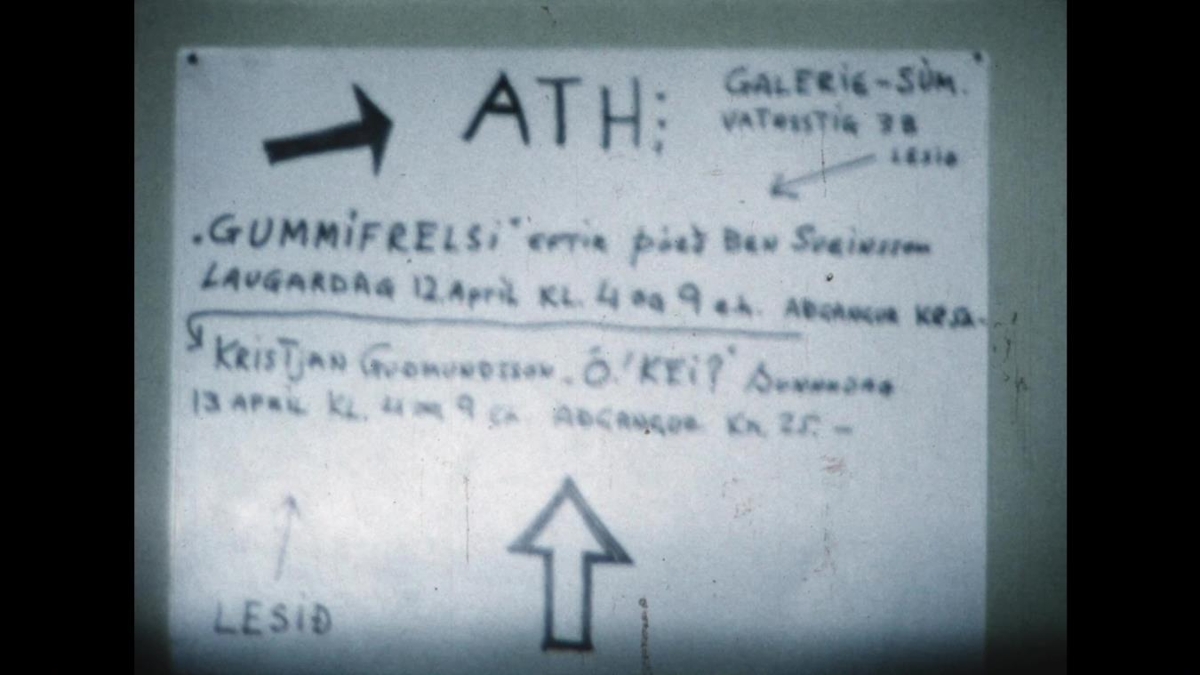 ATH:
GALERIE-SÚM.
VATNSSTÍG 3B
LESIÐ
"GUMMiFRELSi" EFTIR ÞÓRÐ BEN SVEINSSON
LAUGARDAG 12. April KL. 4 OG 9 e.h. ADGANGUR KR.
KRISTJAN GUDMUNDSSON. "Ó! KEi?" SUNNUDAG
13 APRIL KL. 4 OG 9 eh ADGANGUR KR. 25. -
LESIÐ